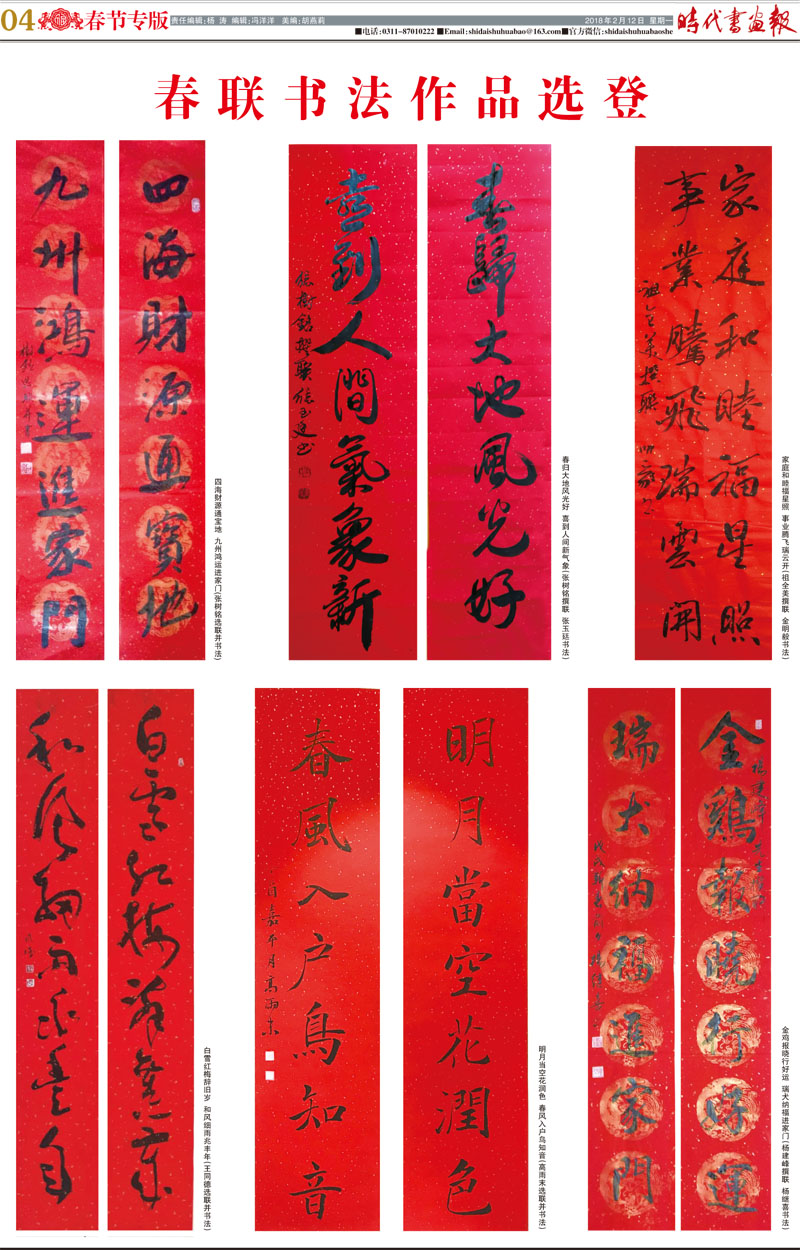 04 春节专版
责任编辑:杨 涛 编辑:冯洋洋 美编:胡燕莉
2018年2月12日 星期一
■电话:0311-87010222 ■Email:shidaishuhuabao@163.com■官方微信:shidaishuhuabaoshe
時代书画報
春联书法作品选登
四海财源通寳地
九州鴻運進家門
四海财源通宝地 九州鸿运进家门(张树铭选联并书法)
春歸大地風光好
喜到人間氣象新
張樹銘撰联 張玉廷书
春归大地风光好 喜到人间新气象(张树铭撰联 张玉廷书法)
家庭和睦福星照
事業騰飛瑞雲開
祖全美撰联
家庭和睦福星照 事业腾飞瑞云开(祖全美撰联 金明毅书法)
白雪红梅辞舊歲
和风细雨兆豊年
白雪红梅辞旧岁 和风细雨兆丰年(王同德选联并书法)
明月當空花潤色
春風入户鳥知音
明月当空花润色 春风入户鸟知音(高雨末选联并书法)
金鷄報曉行好運
瑞犬纳福進家門
金鸡报晓行好运 瑞犬纳福进家门(杨建峰撰联 杨继喜书法)